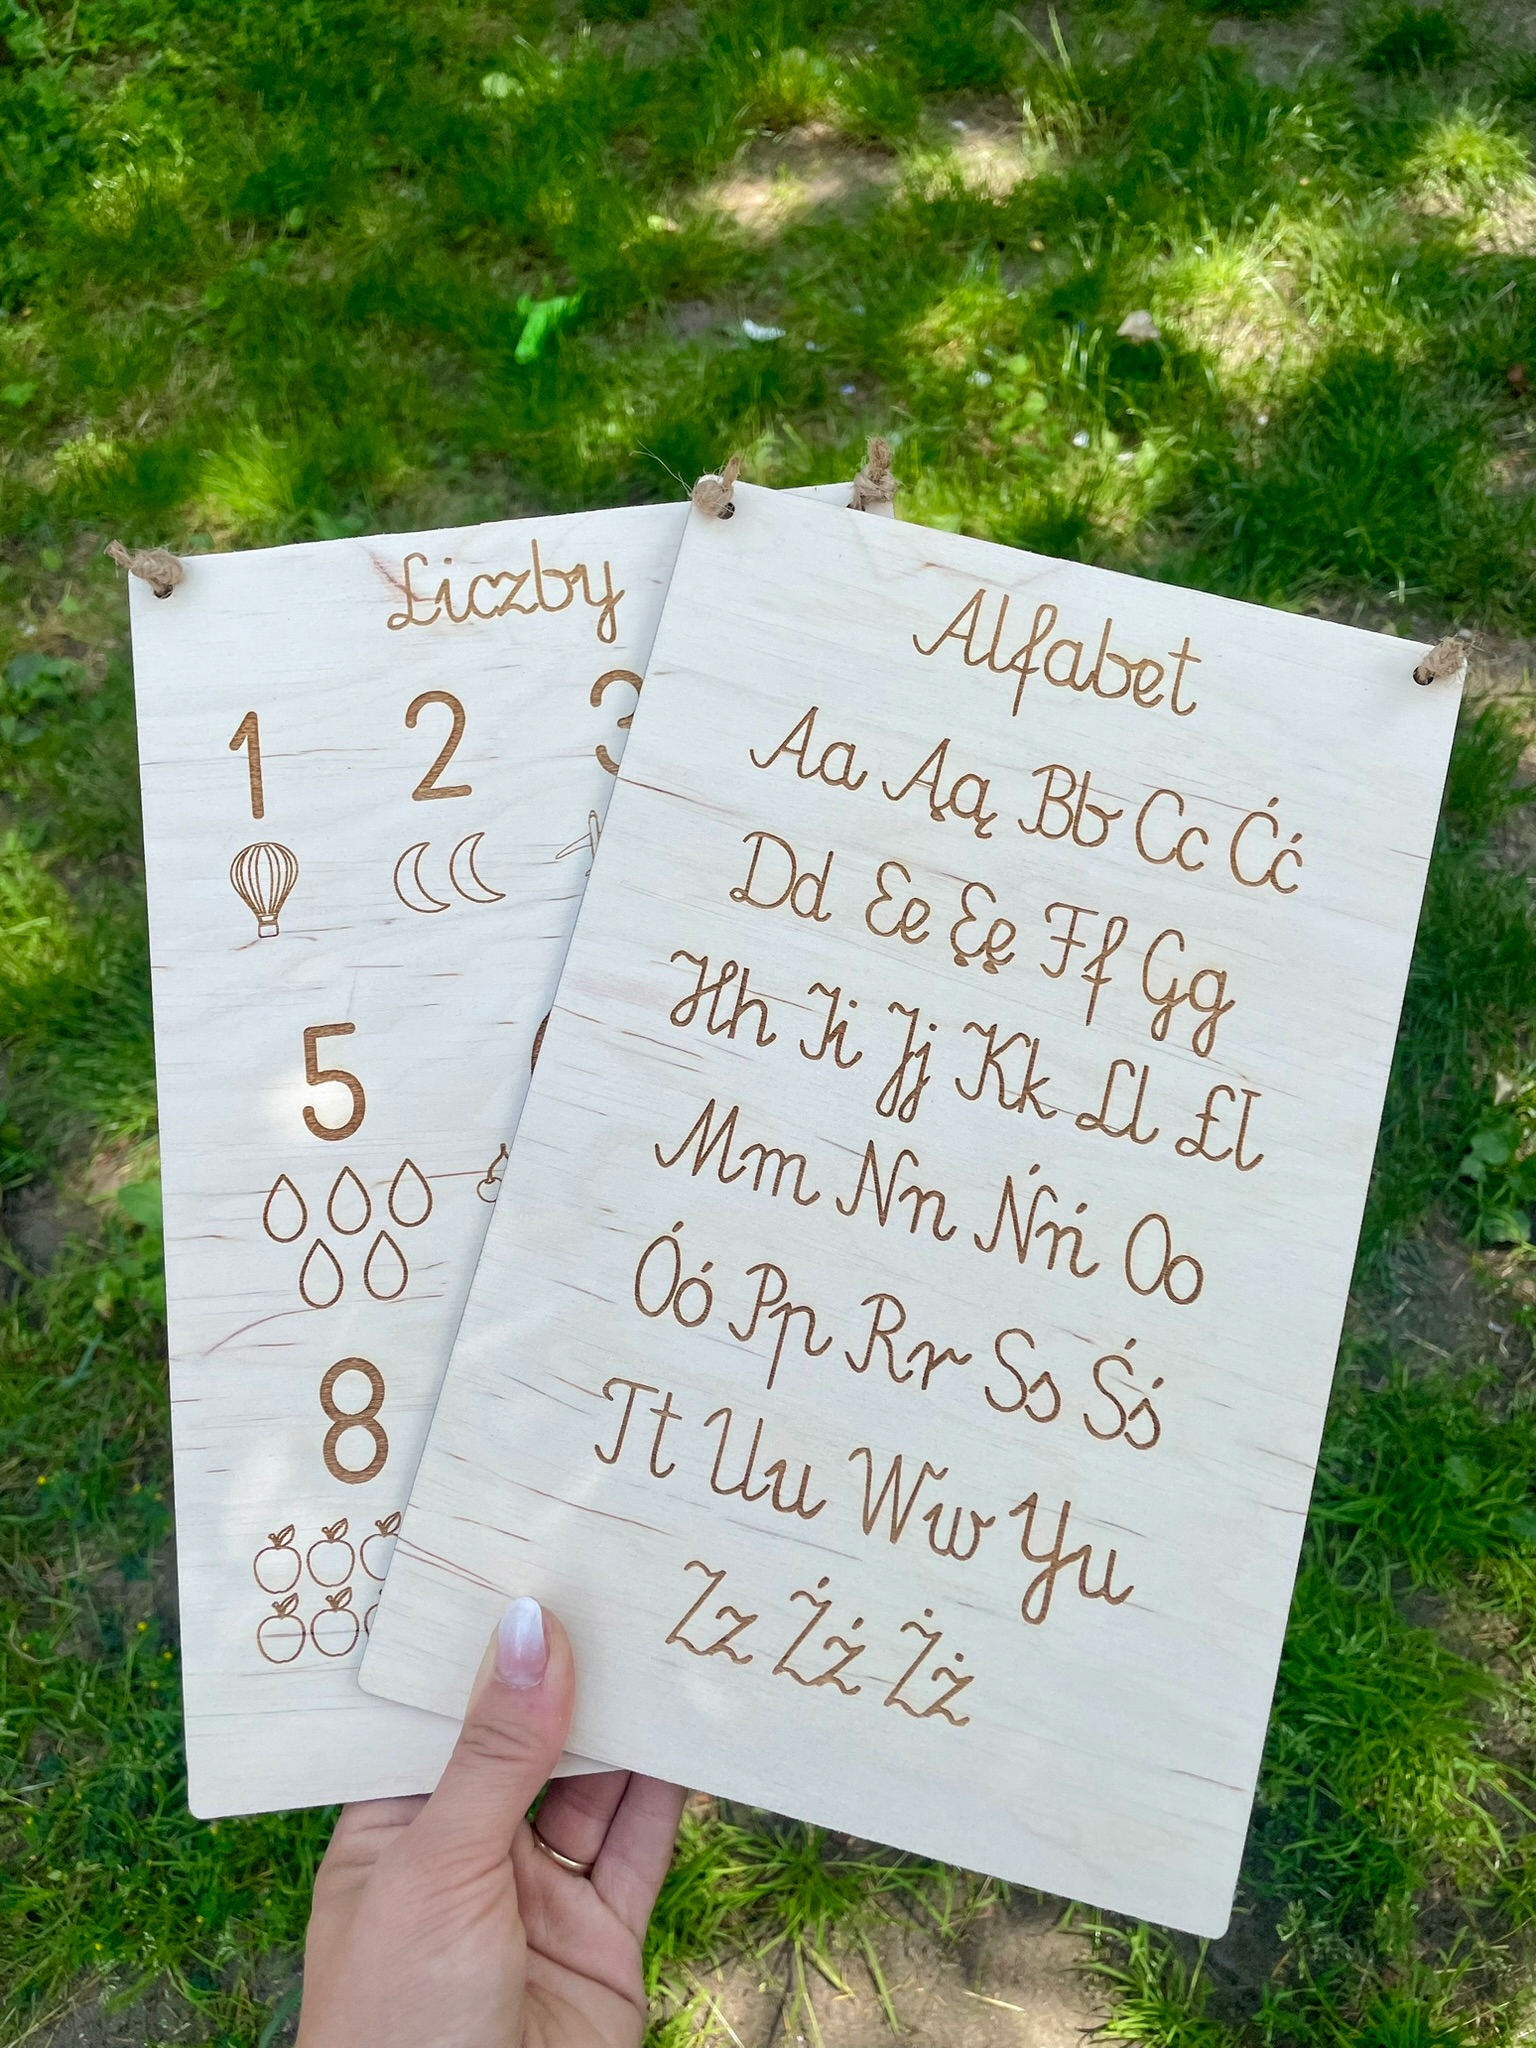 Liczby
1 2 3
5
8
Alfabet
Aa Ąą Bb Cc Ćć
Dd Ee Ęę Ff Gg
Hh Ii Jj Kk Ll Łł
Mm Nn Ńń Oo
Óó Pp Rr Ss Śś
Tt Uu Ww Yy
Zz Źź Żż